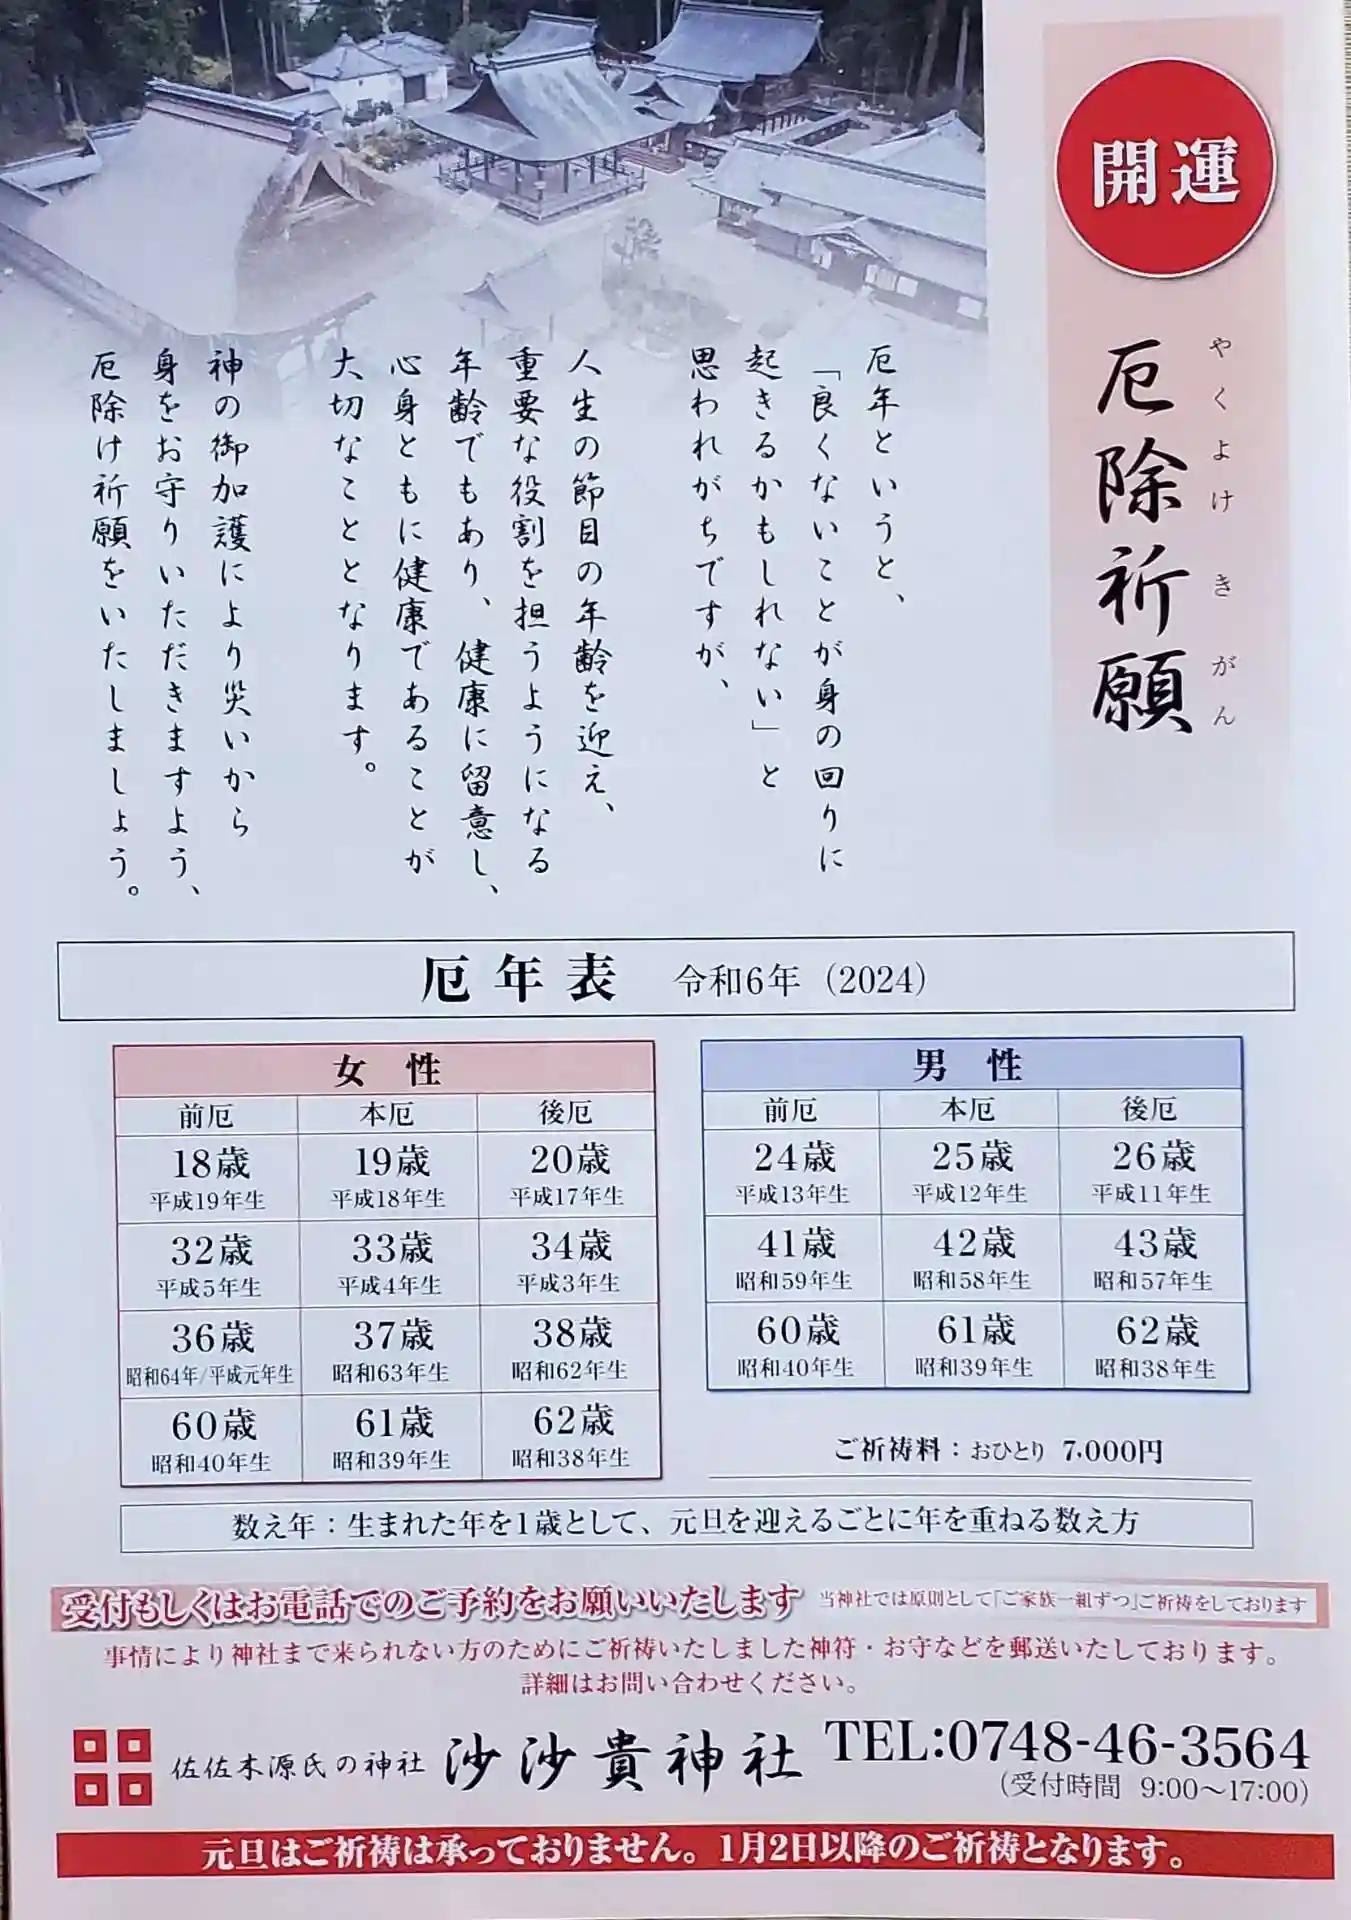 開運
厄除祈願
やくよけきがん
厄年というと、
「良くないことが身の回りに
起きるかもしれない」と
思われがちですが、
人生の節目の年齢を迎え、
重要な役割を担うようになる
年齢でもあり、健康に留意し、
心身ともに健康であることが
大切なこととなります。
神の御加護により災いから
身をお守りいただきますよう、
厄除け祈願をいたしましょう。
厄年表 令和6年（2024）
女性
前厄 本厄 後厄
18歳 19歳 20歳
平成19年生 平成18年生 平成17年生
32歳 33歳 34歳
平成5年生 平成4年生 平成3年生
36歳 37歳 38歳
昭和64年/平成元年生 昭和63年生 昭和62年生
60歳 61歳 62歳
昭和40年生 昭和39年生 昭和38年生
男性
前厄 本厄 後厄
24歳 25歳 26歳
平成13年生 平成12年生 平成11年生
41歳 42歳 43歳
昭和59年生 昭和58年生 昭和57年生
60歳 61歳 62歳
昭和40年生 昭和39年生 昭和38年生
ご祈祷料：おひとり 7,000円
数え年：生まれた年を1歳として、元旦を迎えるごとに年を重ねる数え方
受付もしくはお電話でのご予約をお願いいたします 当神社では原則として「ご家族一組ずつ」ご祈祷をしております
事情により神社まで来られない方のためにご祈祷いたしました神符・お守などを郵送いたしております。
詳細はお問い合わせください。
佐佐木源氏の神社 沙沙貴神社 TEL:0748-46-3564
（受付時間 9:00～17:00）
元旦はご祈祷は承っておりません。1月2日以降のご祈祷となります。